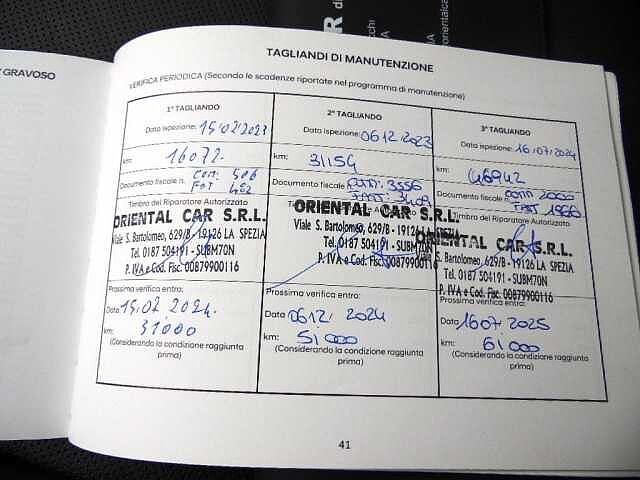 GRAVOSO
TAGLIANDI DI MANUTENZIONE
VERIFICA PERIODICA (Secondo le scadenze riportate nel programma di manutenzione)
1° TAGLIANDO
Data ispezione: 15/02/2023
km: 16072.
Documento fiscale n. COM. 506
FAT 462
Timbro del Riparatore Autorizzato
ORIENTAL CAR S.R.L.
Viale S. Bartolomeo, 629/B - 19126 LA SPEZIA
Tel. 0187 504191 - SUBM70N
P. IVA e Cod. Fisc. 00879900116
Prossima verifica entro:
Data 15.02 2024.
km: 31000
(Considerando la condizione raggiunta
prima)
2° TAGLIANDO
Data ispezione: 06 12/2023
km: 31154
Documento fiscale n. COM. 3556
FATT. 3409
ORIENTAL CAR S.R.L.
Viale S. Bartolomeo, 629/B - 19126 LA SPEZIA
Tel. 0187 504191 - SUBM70N
P. IVA e Cod. Fisc. 00879900116
Prossima verifica entro:
Data 06 12/ 2024
km: 51000
(Considerando la condizione raggiunta
prima)
3° TAGLIANDO
Data ispezione: 16/07/2024
km: 46942
Documento fiscale n. COMM 2000
FATT 1966
Timbro del Riparatore Autorizzato
ORIENTAL CAR S.R.L.
S. Bartolomeo, 629/B - 19126 LA SPEZIA
Tel. 0187 504191 - SUBM70N
P. IVA e Cod. Fisc. 00879900116
Prossima verifica entro:
Data 1607/2025
km: 61000
(Considerando la condizione raggiunta
prima)
41